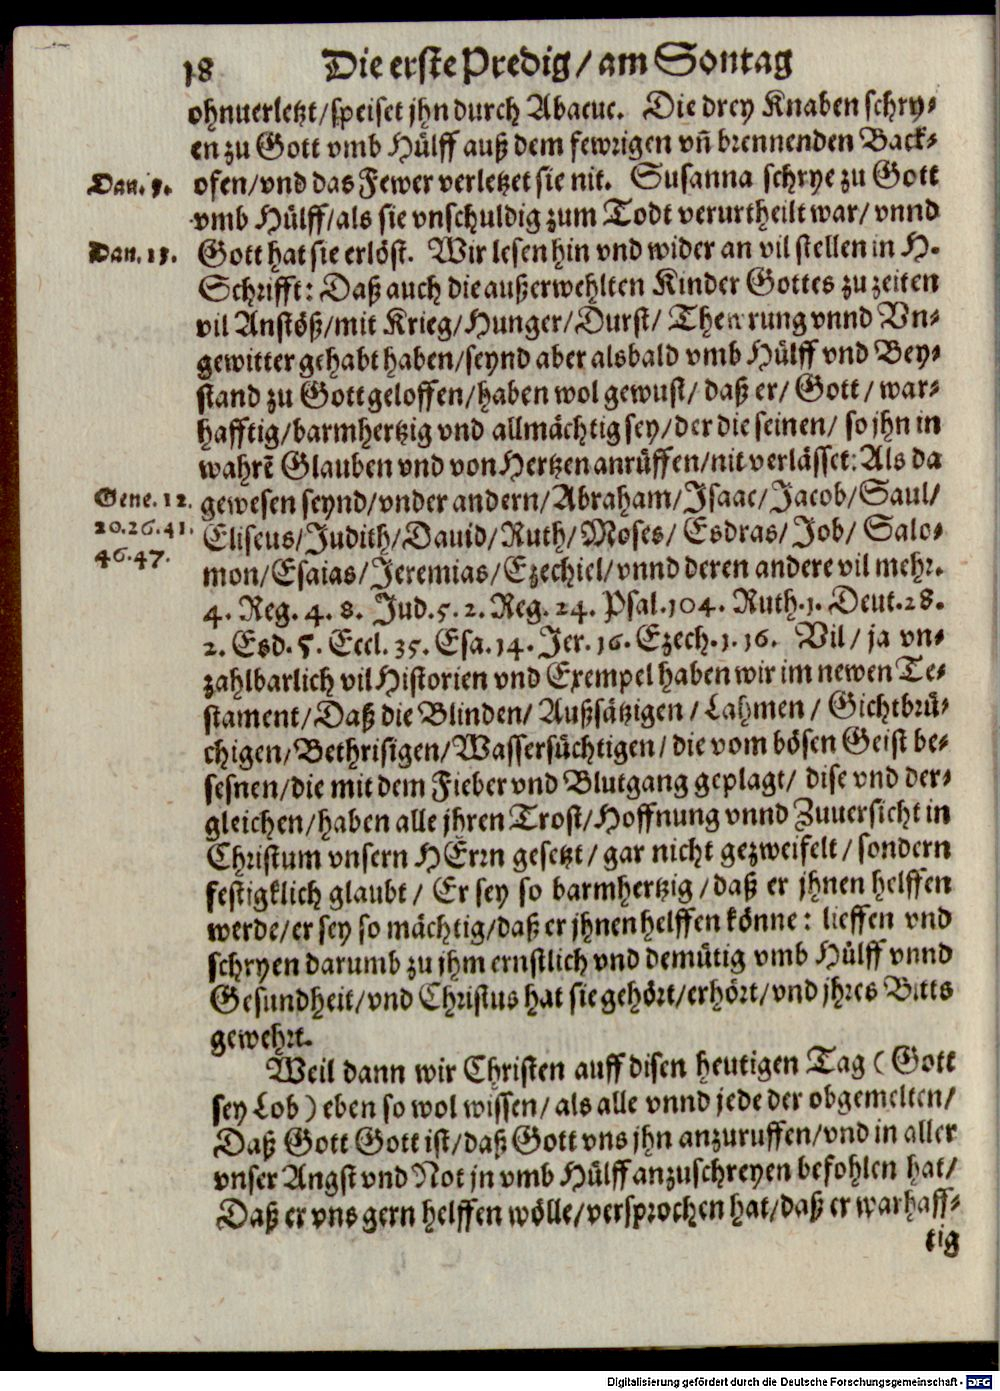 18 Die erste Predig / am Sontag
ohnuerletzt/speiset jhn durch Abacuc. Die drey Knaben schry-
en zu Gott vmb Hülff auß dem fewrigen vñ brennenden Back-
Dan. 3. ofen/vnd das Fewer verletzet sie nit. Susanna schrye zu Gott
vmb Hülff/als sie vnschuldig zum Todt verurtheilt war/ vnnd
Dan. 13. Gott hat sie erlöst. Wir lesen hin vnd wider an vil stellen in H.
Schrifft: Daß auch die außerwehlten Kinder Gottes zu zeiten
vil Anstöß/mit Krieg/Hunger/Durst/ Thewrung vnnd Vn-
gewitter gehabt haben/seynd aber alsbald vmb Hülff vnd Bey-
stand zu Gott geloffen/haben wol gewust/ daß er/ Gott/ war-
hafftig/barmhertzig vnd allmächtig sey/der die seinen/ so jhn in
wahrē Glauben vnd von Hertzen anrüffen/nit verlässet: Als da
Gene. 12. gewesen seynd/vnder andern/Abraham/Isaac/Jacob/Saul/
20.26.41. Eliseus/Judith/Dauid/Ruth/Moses/ Esdras/Job/ Salo-
46.47. mon/Esaias/Jeremias/Ezechiel/vnnd deren andere vil mehr.
4. Reg. 4. 8. Jud. 5. 2. Reg. 24. Psal. 104. Ruth. 1. Deut. 28.
2. Esd. 5. Eccl. 35. Esa. 14. Jer. 16. Ezech. 1. 16. Vil/ ja vn-
zahlbarlich vil Historien vnd Exempel haben wir im newen Te-
stament/Daß die Blinden/ Außsätzigen/ Lahmen/ Gichtbrü-
chigen/Bethrisigen/Wassersüchtigen/ die vom bösen Geist be-
sesnen/die mit dem Fieber vnd Blutgang geplagt/ dise vnd der-
gleichen/haben alle jhren Trost/Hoffnung vnnd Zuuersicht in
Christum vnsern HErrn gesetzt/ gar nicht gezweifelt/ sondern
festigklich glaubt/ Er sey so barmhertzig/daß er jhnen helffen
werde/er sey so mächtig/daß er jhnen helffen könne: lieffen vnd
schryen darumb zu jhm ernstlich vnd demütig vmb Hülff vnnd
Gesundheit/vnd Christus hat sie gehört/erhört/vnd jhres Bitts
gewehrt.
Weil dann wir Christen auff disen heutigen Tag (Gott
sey Lob) eben so wol wissen/ als alle vnnd jede der obgemelten/
Daß Gott Gott ist/daß Gott vns jhn anzuruffen/vnd in aller
vnser Angst vnd Not jn vmb Hülff anzuschreyen befohlen hat/
Daß er vns gern helffen wölle/versprochen hat/daß er warhaff-
tig
Digitalisierung gefördert durch die Deutsche Forschungsgemeinschaft - DFG